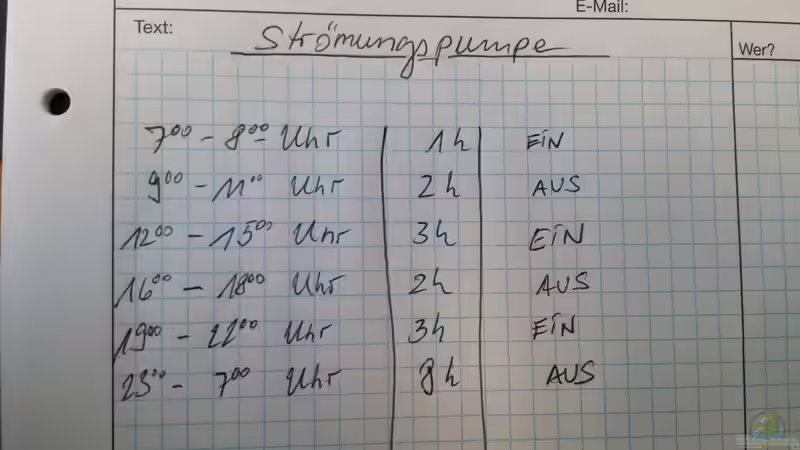 E-Mail:
Text:
Strömungspumpe
Wer?
7⁰⁰ - 8⁰⁰ Uhr 1h EIN
9⁰⁰ - 11⁰⁰ Uhr 2h AUS
12⁰⁰ - 15⁰⁰ Uhr 3h EIN
16⁰⁰ - 18⁰⁰ Uhr 2h AUS
19⁰⁰ - 22⁰⁰ Uhr 3h EIN
23⁰⁰ - 7⁰⁰ Uhr 8h AUS